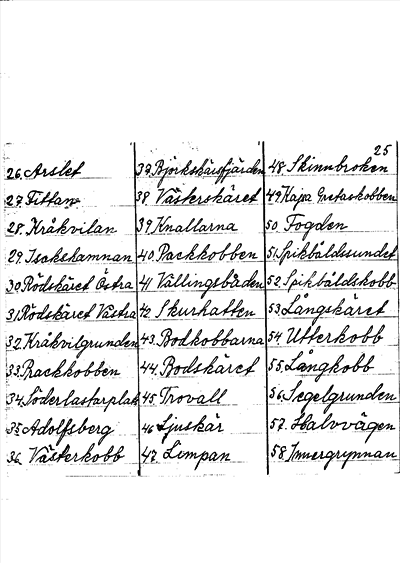 25
26. Arslet
27. Tittan
28. Kråkvilan
29. Isakshamnan
30. Rödskäret Östra
31. Rödskäret Västra
32. Kråkvilgrunden
33. Prackkobben
34. Söderlastarplats
35. Adolfsberg
36. Västerkobb
37. Björkskärsfjärden
38. Västerskäret
39. Knallarna
40. Packkobben
41. Vållingsbåden
42. Skurhatten
43. Bodkobbarna
44. Bodskäret
45. Trovall
46. Ljuskär
47. Limpan
48. Skinnbroken
49. Kajsa Gretaskobben
50. Fogden
51. Spikbåldssundet
52. Spikbåldskobb
53. Långskäret
54. Utterkobb
55. Långkobb
56. Segelgrunden
57. Halvvägen
58. Innergrynnan